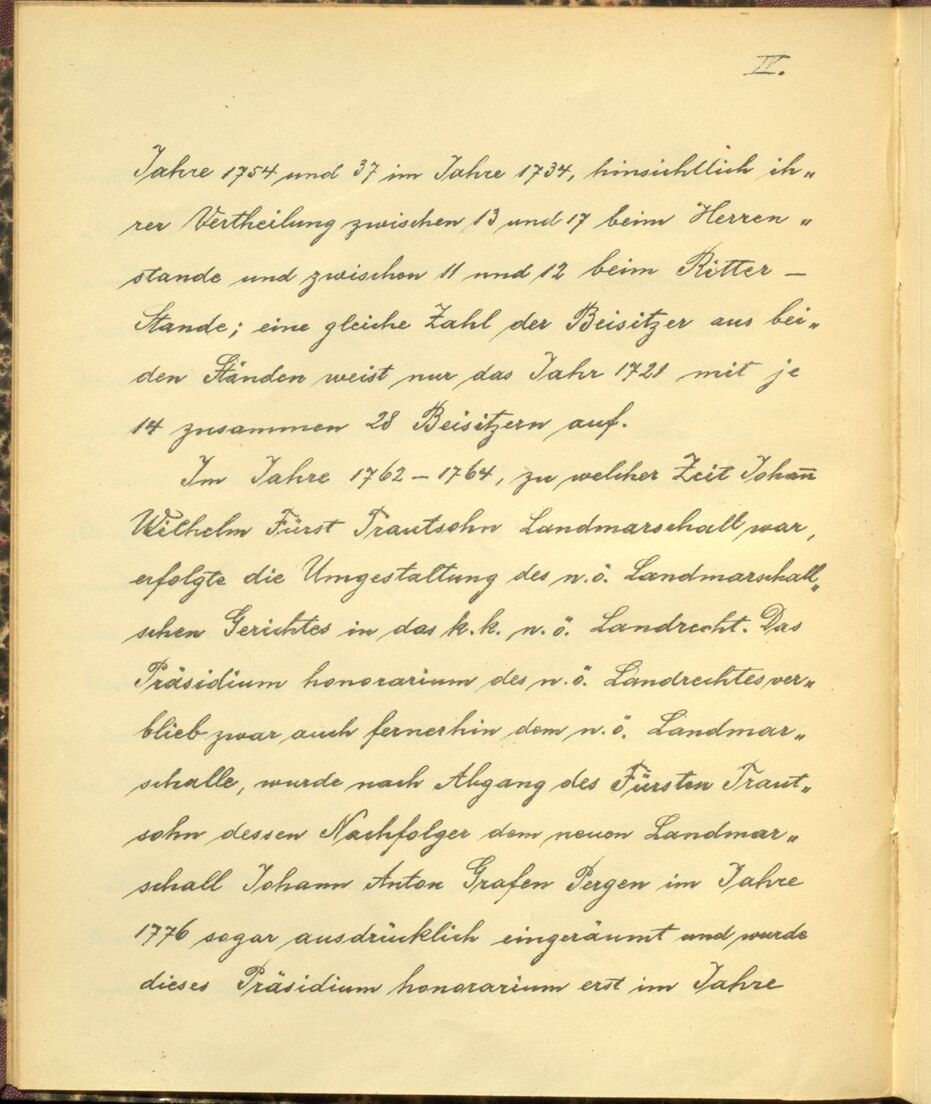 IV.
Jahre 1754 und 37 im Jahre 1734, hinsichtlich ih„
rer Vertheilung zwischen 13 und 17 beim Herren„
stande und zwischen 11 und 12 beim Ritter –
Stande; eine gleiche Zahl der Beisitzer aus bei„
den Ständen weist nur das Jahr 1721 mit je
14 zusammen 28 Beisitzern auf.
Im Jahre 1762 – 1764, zu welcher Zeit Johan̅n̅
Wilhelm Fürst Trautsohn Landmarschall war,
erfolgte die Umgestaltung des n.ö. Landmarschall„
schen Gerichtes in das k.k. n.ö. Landrecht. Das
Präsidium honorarium des n.ö. Landrechtes ver„
blieb zwar auch fernerhin dem n.ö. Landmar„
schalle, wurde nach Abgang des Fürsten Traut„
sohn dessen Nachfolger dem neuen Landmar„
schall Johann Anton Grafen Pergen im Jahre
1776 sogar ausdrücklich eingeräumt und wurde
dieses Präsidium honorarium erst im Jahre